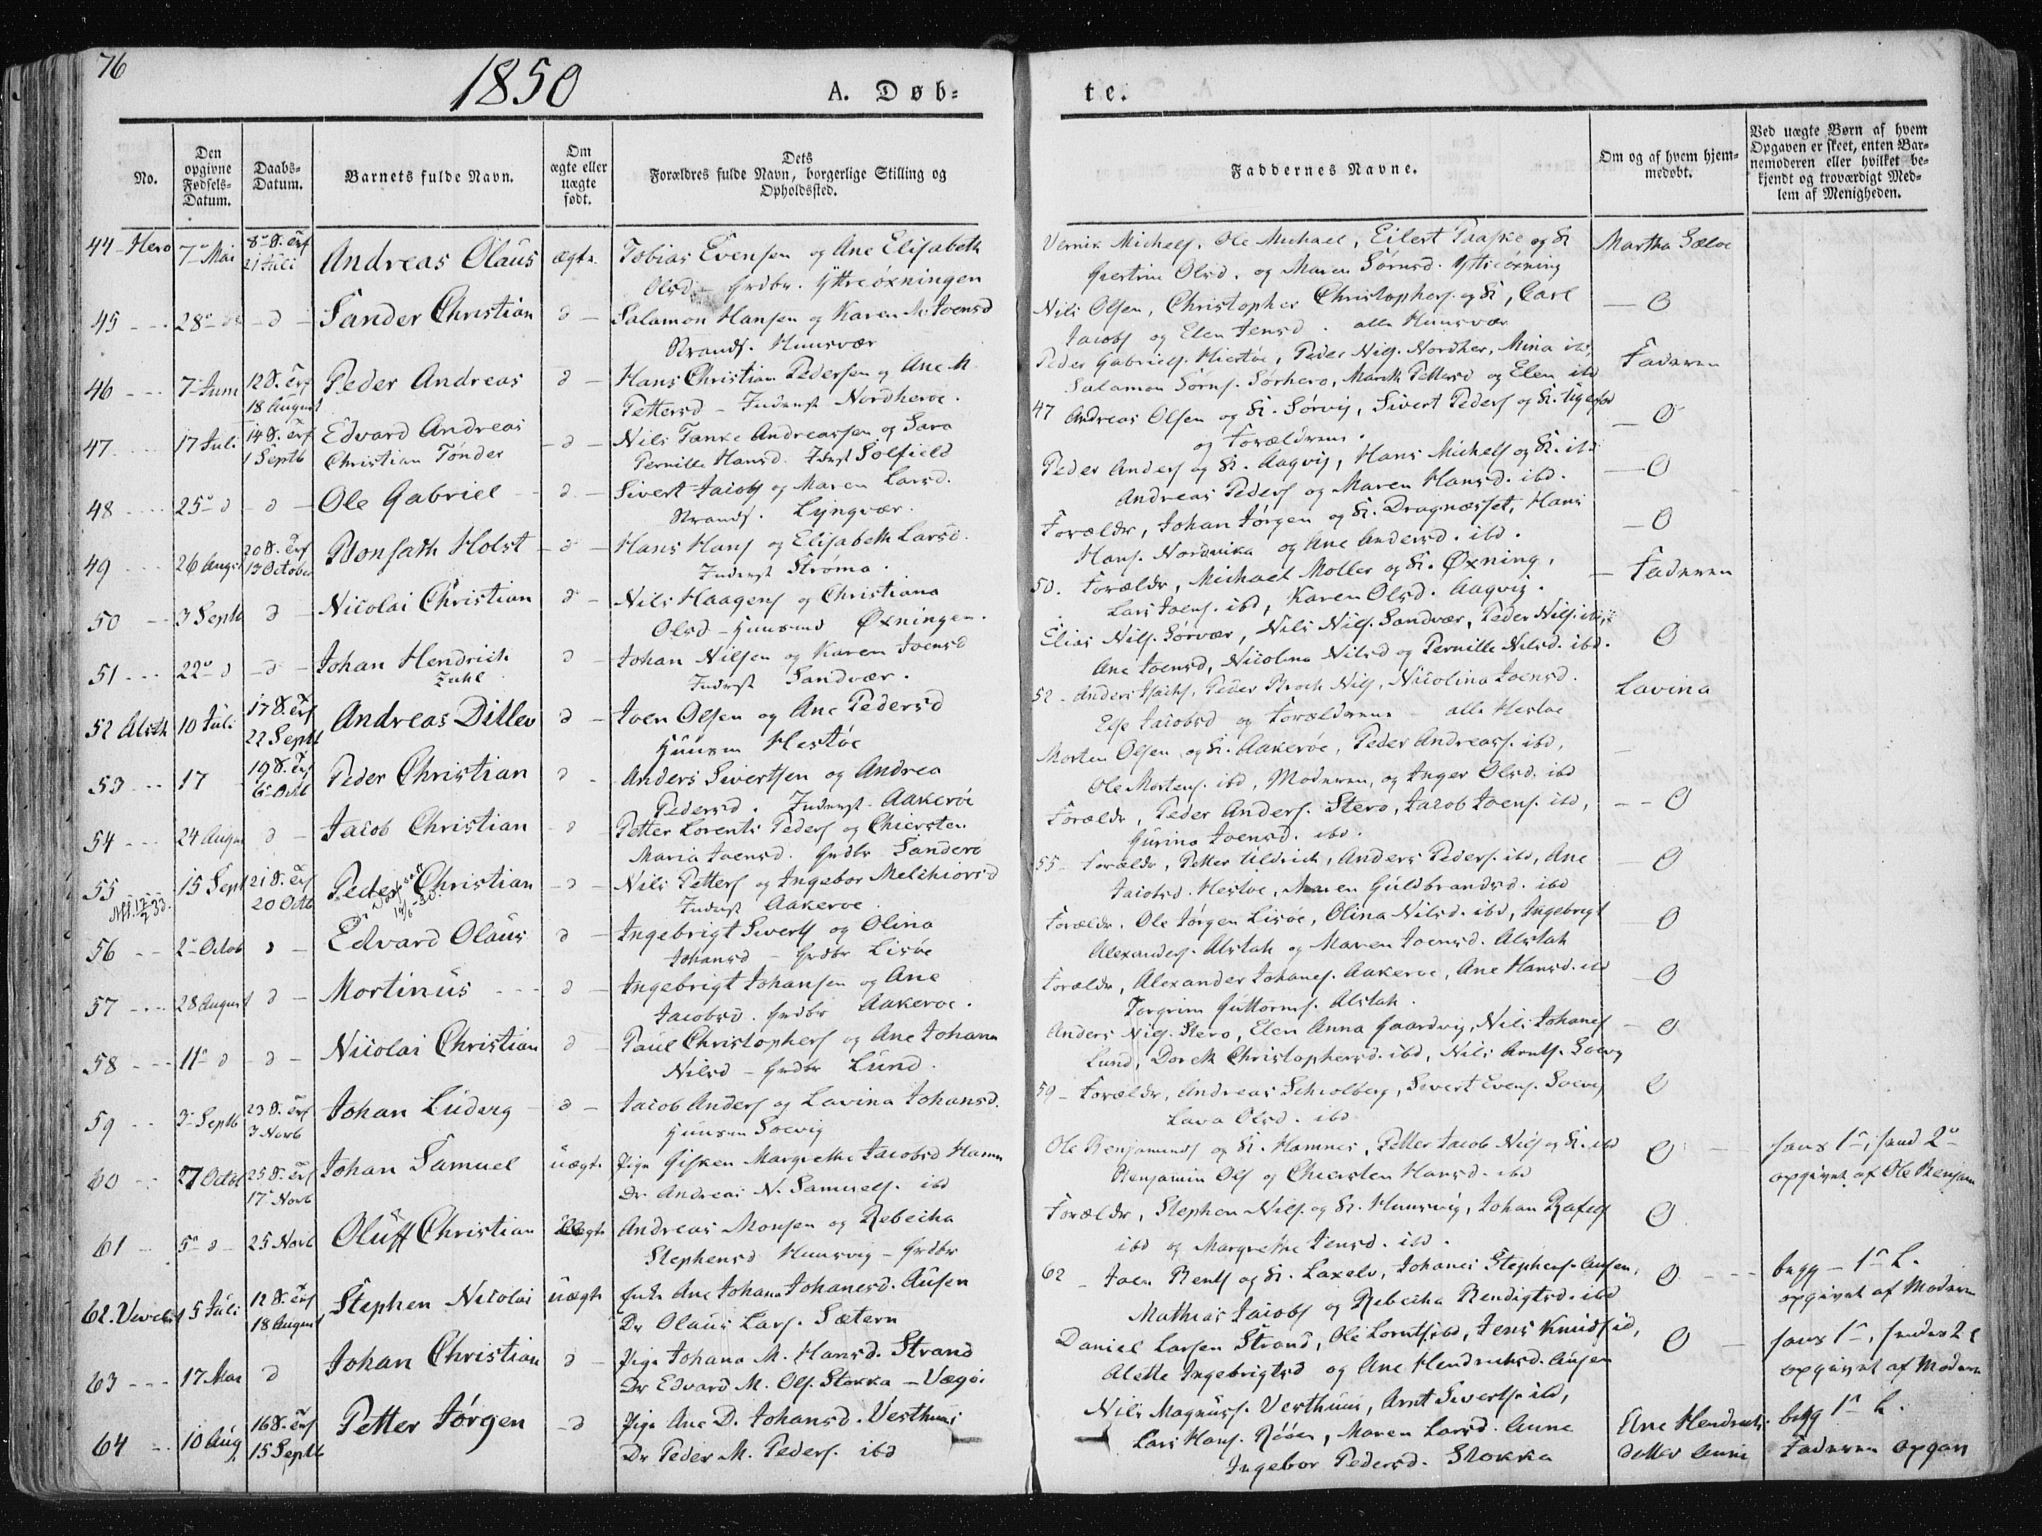 76
1850
A. Døb-
te.
No.
Den opgivne Fødsels-Datum.
Daabs-Datum.
Barnets fulde Navn.
Om ægte eller uægte født.
Dets Forældres fulde Navn, borgerlige Stilling og Opholdssted.
Faddernes Navne.
Om og af hvem hjem-medøbt.
Ved uægte Børn af hvem Opgaven er skeet, enten Bar-nemoderen eller hvilket be-kjendt og troværdigt Med-lem af Menigheden.
44 - Hero 7de Mai 21 Juli Andreas Olaus ægte Tobias Evensen og Ane Elisabeth
Olsd - Grdbr. Yttreøxningen
Ole Michael, Eilert
Olsd. og Maren Sørnsd. Yttreøxning
Martha
45 28 d Sander Christian d - Salamon Hansen og Karen M. Joensd
Strands. Huusvær
Nils Olsen, Christopher Christophers. og K, Carl
Jacobs og Elen Jensd. alle Huusvær
O
46 7 Juni 12 S. Trf 18 August Peder Andreas d - Hans Christian Pedersen og Ane M.
Pettersd - Inderst Nordheroe.
Peder Gabriels. Hiertøe, Peder Nils. Nordher, Mina ibd,
Salamon Sørns. Sørhero, Marith Pettersd og Elen ibd
Faderen
47 17 Juli 14 S. Trf 1 Septb Edvard Andreas
Christian Tønder
d - Nils Tanke Andreassen og Sara
Pernille Hansd. Inderst Solfield
47 Andreas Olsen og K. Sørvig, Sivert Peders og K.
og Forældrene.
O
48 25 d - d - Ole Gabriel d - Sivert Jacobs og Maren Larsd.
Strands. Lyngvær.
Peder Anders og K. Aagvig, Hans Michels og K. ibd
Andreas Peders og Maren Hansd. ibd.
O
49 26 Augst 20 S. Trf 13 October Bonsath Holst - d - Hans Hans og Elisabeth Larsd.
Inderst Strøma.
Forældr, Johan Jørgen og K. Dragnæsset, Hans
Hans. Nordvika og Ane Andersd. ibd.
O
50 3 Septb d - Nicolai Christian d - Nils Haagens og Christiana
Olsd - Huusmd Øxningen.
50. Forældr, Michael Moller og K. Øxning,
Lars Joens. ibd, Karen Olsd. Aagvig.
Faderen
51 22 d - d - Johan Hendrich
Zuhl
d - Johan Nilsen og Karen Joensd
Inderst Sandvær.
Elias Nils. Sørvær, Nils Nils. Sandvær, Peder Nils. ibd,
Ane Joensd, Nicolina Nilsd og Pernille Nilsd. ibd.
O
52 Alsth 10 Juli 17 S. Trf 22 Septb Andreas Ditlev d - Joen Olsen og Ane Pedersd
Huusm Hestøe
52 - Anders Isachs, Peder Broch Nils, Nicolina Joensd.
Else Jacobsd og Forældrene - alle Hestøe
Lavina
53 17 19 S. Trf 6 Octb Peder Christian d - Anders Sivertsen og Andrea
Pedersd. Inderst Aakerøe
Morten Olsen og K. Aakerøe, Peder Andreass. ibd,
Ole Mortens. ibd, Moderen, og Inger Olsd. ibd
54 24 August d - Jacob Christian d Petter Lorents Peders og Chiersten
Maria Joensd. Grdbr Sanderø
Forældr, Peder Anders. Stero, Jacob Joens. ibd,
Gurina Joensd. ibd.
O
55 15 Sept 21 S. Trf 20 Octb Peder Christian - d - Nils Petters og Ingebor Melchiorsd
Inderst Aakeroe
55 - Forældr, Petter Uldrich, Anders Peders. ibd, Ane
Jacobsd. Hestøe, Maren Guldbrandsd. ibd
O
56 2 Octob d - Edvard Olaus d - Ingebrigt Siverts og Olina
Johansd - Grdbr Lisøe
Forældr. Ole Jørgen Lisøe, Olina Nilsd. ibd, Ingebrigt
Alexanders. Alstah og Maren Joensd. Alstah
O
57 28 August d - Mortinus d - Ingebrigt Johansen og Ane
Jacobsd. Grdbr Aakeroe.
Forældr, Alexander Johanes. Aakeroe, Ane Hansd. ibd
Torgrim Guttorms. Alstah.
O
58 11 d - d - Nicolai Christian d - Paul Christophers og Ane Johana
Nilsd - Grdbr Lund.
Anders Nils. Stero, Elen Anna Gaardvig, Nils Johanes
Lund, Doreth Christophersd. ibd, Nils Arnts. Soevig
O
59 3 Septb 23 S. Trf 3 Novb Johan Ludvig d - Jacob Anders og Lavina Johansd.
Huusm Soevig
59 - Forældr, Andreas Schiolberg, Sivert Evens. Soevig
Lava Olsd. ibd.
O
60 27 Octob 25 S. Trf 17 Novb Johan Samuel uægte Pige Gisken Margrethe Jacobsd Hamn
Dr Andreas N. Samuels. ibd
Ole Benjamins og K. Hamnes, Petter Jacob Nils og K. ibd
Benjamin Ols og Chiersten Hansd. ibd
O
opgivet af Ole Benjam
61 5 d - 25 Novb Oluff Christian ægte Andreas Monsen og Rebecha
Stephensd Huusvig - Grdbr
Forældr, Stephen Nils. og K. Huusvig, Johan Rafels
ibd og Margrethe Jensd. ibd.
O
62. 5 Juli 12 S. Trf 18 August Stephen Nicolai uægte Enke Ane Johana Johanesd. Ausen
Dr Olaus Lars. Sætern
62 - Joen Bents og K. Laxelv, Johanes Stephens. Ausen,
Mathias Jacobs og Rebecha Bendigtsd. ibd
O
begg - 1 L.
opgivet af Moderen
63 17 Mai d Johan Christian d - Pige Johana M. Hansd. Strand
Dr Edvard M. Ols. Stokka - Vægø.
Daniel Larsen Strand, Ole Lornts ibd, Jens Knuds ibd,
Alette Ingebrigtsd og Ane Hendrichsd. Ausen
O
opgivet af Moderen
64 10 Aug 16 S. Trf 15 Septb Petter Jørgen d Pige Ane D. Johansd. Vesthuus
Dr Peder M. Peders. ibd
Nils Magnus. Vesthuus, Arnt Siverts. ibd,
Lars Hans. Røøen, Maren Larsd. Aune
Ingebor Pedersd. Stokka
Ane Hendrich
begg 1 L.
Faderen opgav